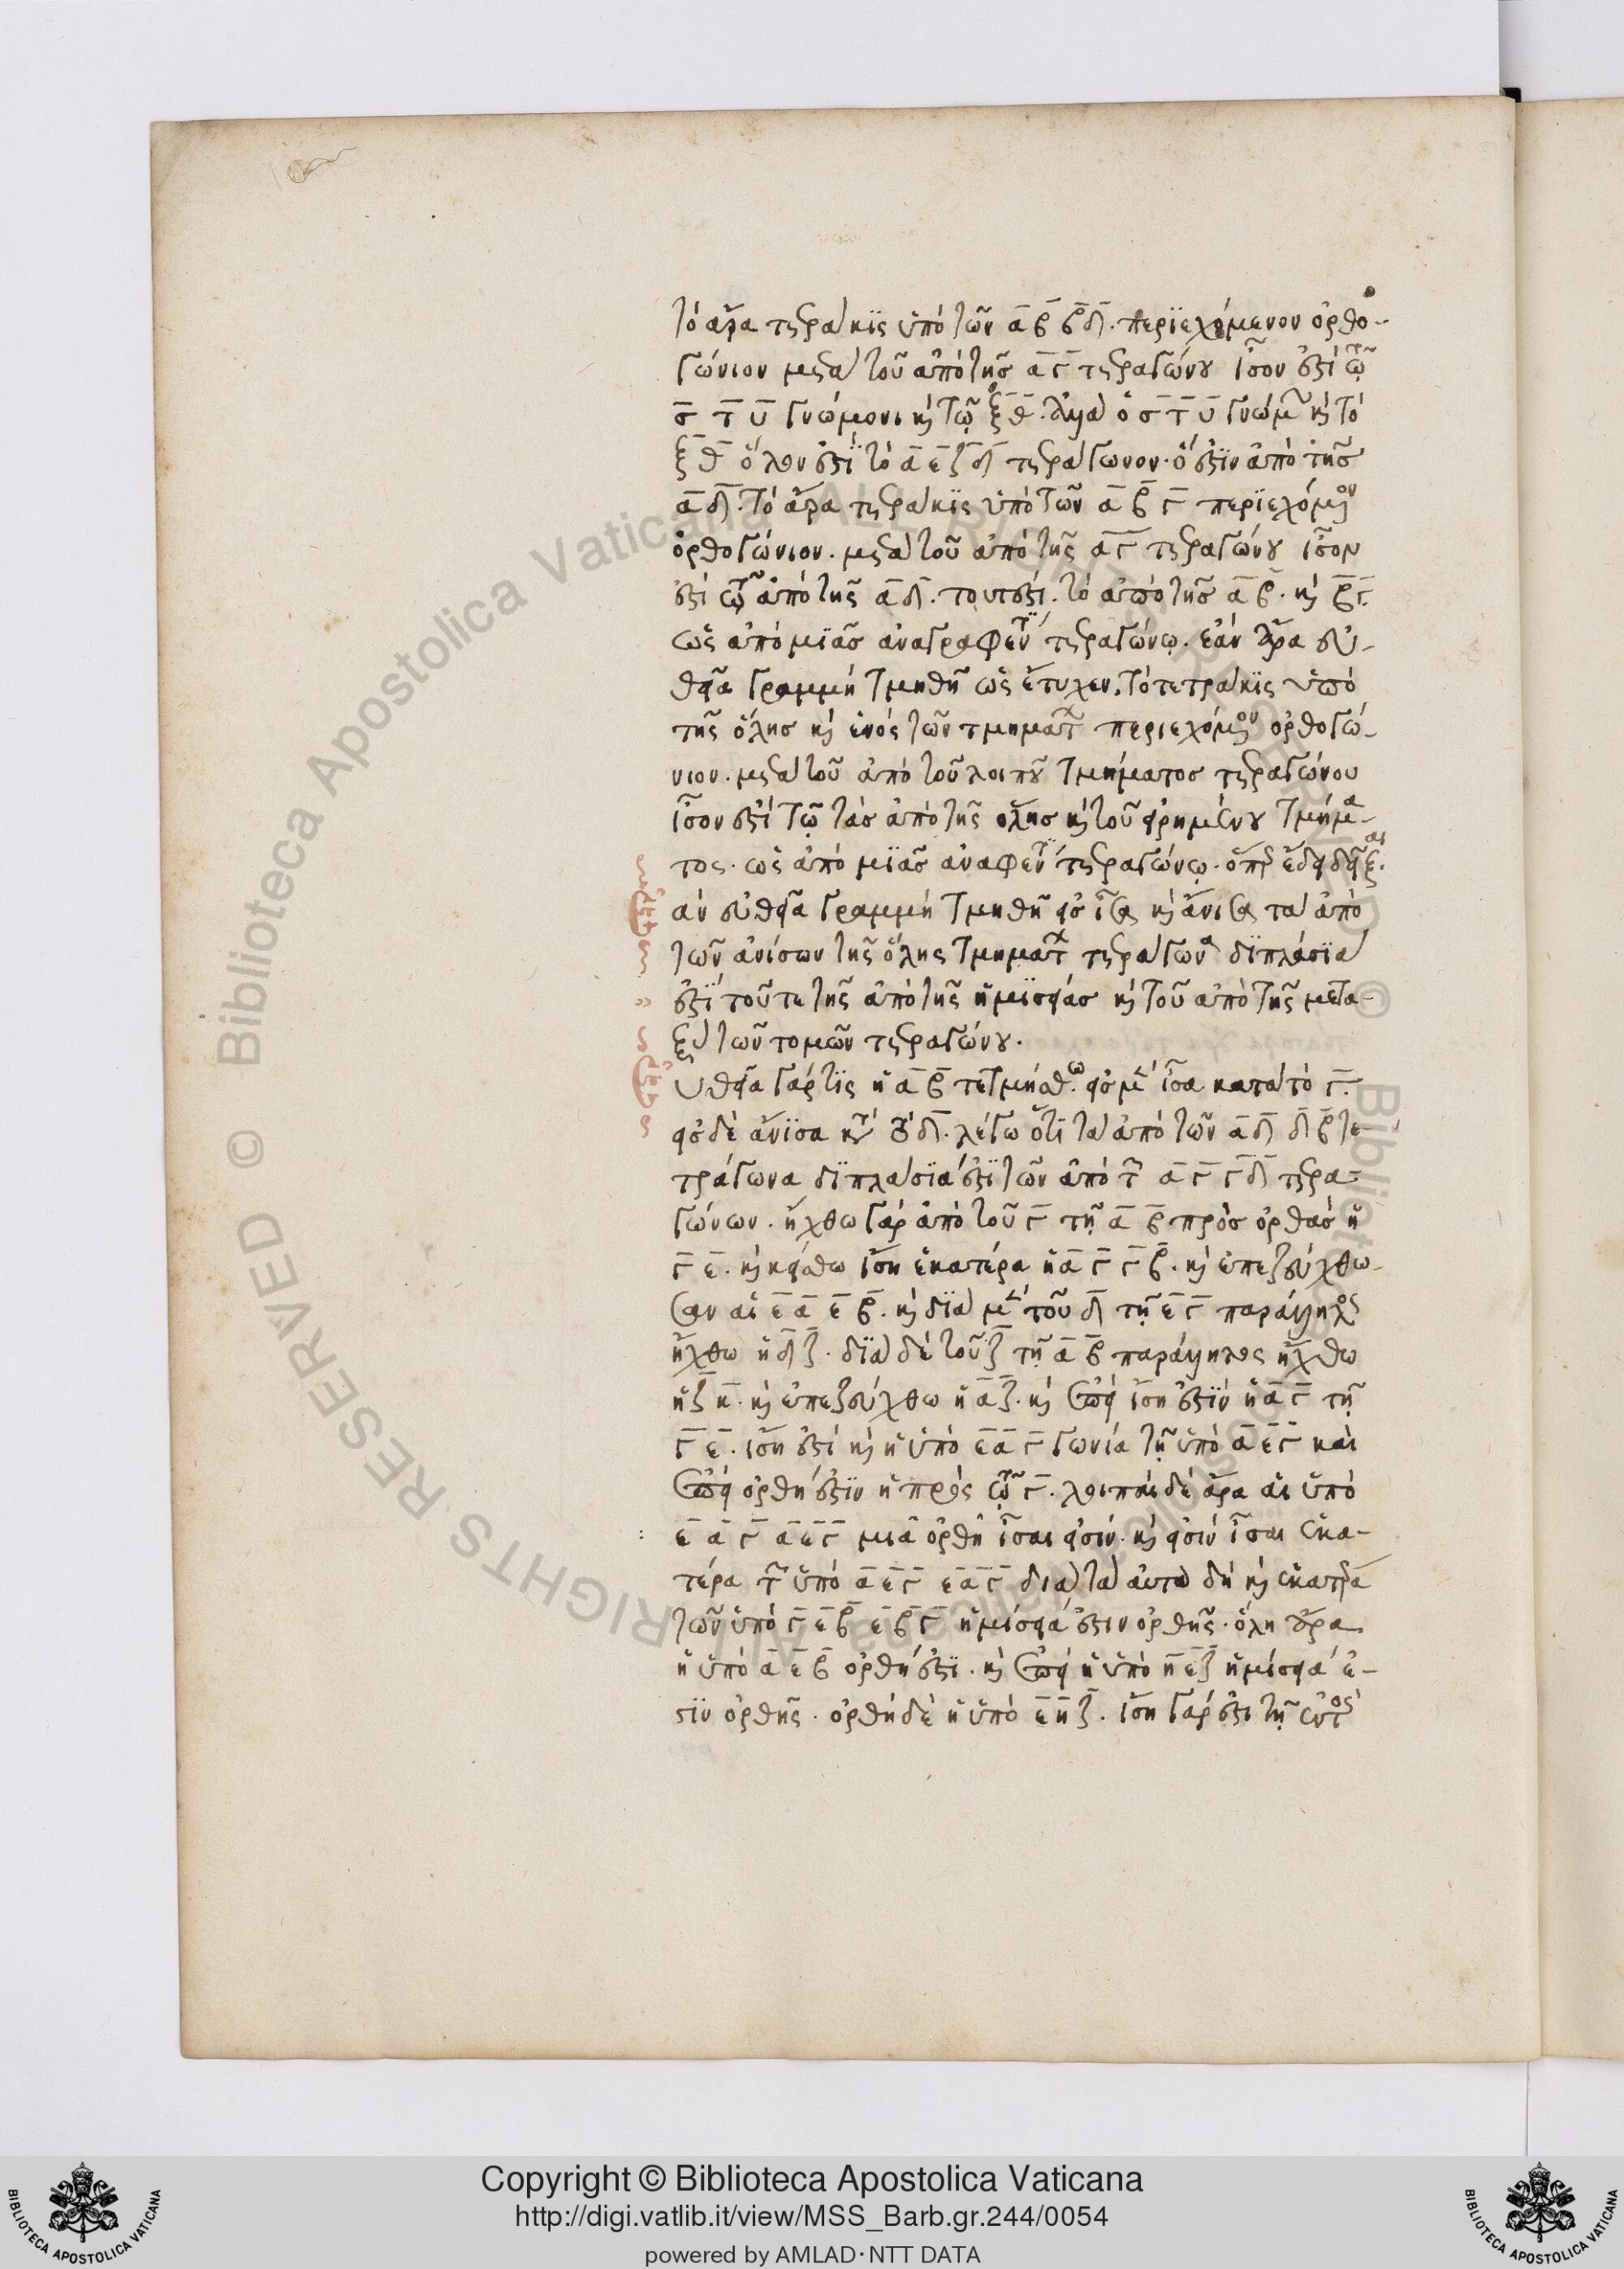 τὸ ἄρα τετράκϊς ὑπὸ τῶν α β β δ. περϊεχόμενον ὀρθο-
γώνιον μετὰ τοῦ ἀπὸ τῆς α γ τετραγώνου ἴσον ἐστὶ τῷ
σ τ υ γνώμονι καὶ τῷ ξ θ. ἀλλὰ ὁ σ τ υ γνώμ καὶ τὸ
ξ θ ὅλον ἐστὶ τὸ α ε ζ δ τετράγωνον. ὅ ἐστϊν ἀπὸ τῆς
α δ. τὸ ἄρα τετράκϊς ὑπὸ τῶν α β γ περϊεχόμενον
ὀρθογώνιον. μετὰ τοῦ ἀπὸ τῆς α γ τετραγώνου ἴσον
ἐστὶ τῷ ἀπὸ τῆς α δ. τουτεστι. τὸ ἀπὸ τῆς α β. καὶ β γ.
ὡς ἀπὸ μϊᾶς ἀναγραφέντϊ τετραγώνῳ. ἐὰν ἄρα εὐ-
θεῖα γραμμὴ τμηθῆ ὡς ἔτυχεν. τὸ τετράκϊς ὑπὸ
τῆς ὅλης καὶ ἑνὸς τῶν τμημάτων περιεχόμενον ὀρθογώ-
νιον. μετὰ τοῦ ἀπὸ τοῦ λοιποῦ τμήματος τετραγώνου
ἴσον ἐστὶ τῷ τὰς ἀπὸ τῆς ὅλης καὶ τοῦ εἰρημένου τμήμα-
τος. ὡς ἀπὸ μϊᾶς ἀναφέντϊ τετραγώνῳ. ὅπερ ἔδει δεῖξαι.
ὰν εὐθεῖα γραμμὴ τμηθῆ εἰς ἴσα καὶ ἄνισα τὰ ἀπὸ
τῶν ἀνίσων τῆς ὅλης τμημάτων τετράγωνα δϊπλάσϊά
ἐστϊ τοῦ τε τῆς ἀπὸ τῆς ἡμϊσείας καὶ τοῦ ἀπὸ τῆς μετα-
ξὺ τῶν τομῶν τετραγώνου.
ὐθεῖα γάρ τϊς ἡ α β τετμήσθω. εἰς μὲν ἴσα κατὰ τὸ γ.
εἰς δὲ ἄνϊσα κατὰ τὸ δ. λέγω ὅτϊ τὰ ἀπὸ τῶν α δ δ β τε-
τράγωνα δϊπλάσϊά ἐστϊ τῶν ἀπὸ τῶν α γ γ δ τετρα-
γώνων. ἤχθω γὰρ ἀπὸ τοῦ γ τῇ α β πρὸς ὀρθὰς ἡ
γ ε. καὶ κείσθω ἴση ἑκατέρα ἡ α γ γ β. καὶ ἐπεζεύχθω-
σαν αἱ ε α ε β. καὶ δϊὰ μὲν τοῦ δ τῇ ε γ παράλληλος
ἤχθω ἡ δ ζ. δϊὰ δὲ τοῦ ζ τῇ α β παράλληλος ἤχθω
ἡ ζ η. καὶ ἐπεζεύχθω ἡ α ζ. καὶ ἐπεὶ ἴση ἐστϊν ἡ α γ τῇ
γ ε. ἴση ἐστὶ καὶ ἡ ὑπὸ ε α γ γωνία τῇ ὑπὸ α ε γ καὶ
ἐπεὶ ὀρθή ἐστϊν ἡ πρὸς τῷ γ. λοιπαὶ δὲ ἄρα αἱ ὑπὸ
ε α γ α ε γ μιᾶ ὀρθῆ ἴσαι εἰσίν. καὶ εἰσὶν ἴσαι ἑκα-
τέρα τῶν ὑπὸ α ε γ ε α γ διὰ τὰ αὐτὰ δὴ καὶ ἑκατέρα
τῶν ὑπὸ γ ε β ε β γ ἡμίσειά ἐστιν ὀρθῆς. ὅλη ἄρα
ἡ ὑπὸ α ε β ὀρθή ἐστϊ. καὶ ἐπεὶ ἡ ὑπὸ η ε ζ ἡμίσειά ἐ-
στϊν ὀρθῆς. ὀρθὴ δὲ ἡ ὑπὸ ε η ζ. ἴση γάρ ἐστι τῇ ἐντὸς
Copyright © Biblioteca Apostolica Vaticana
http://digi.vatlib.it/view/MSS_Barb.gr.244/0054
powered by AMLAD·NTT DATA
BIBLIOTECA APOSTOLICA VATICANA
BIBLIOTECA APOSTOLICA VATICANA